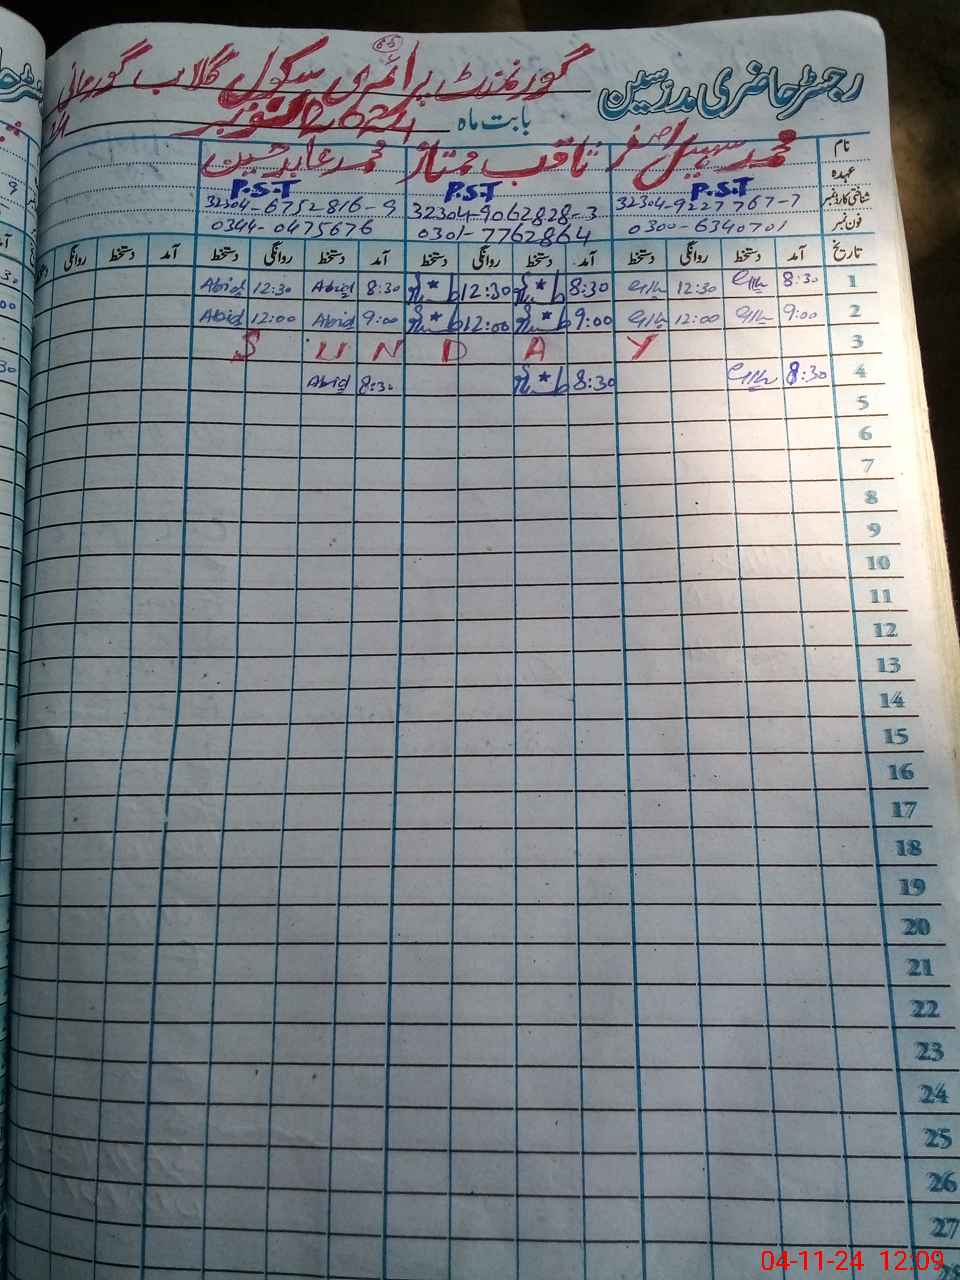 65
رجسٹر حاضری مدرسین گورنمنٹ پرائمری سکول گلاب گورمانی
بابت ماہ
نام محمد سہیل اصغر ثاقب ممتاز محمد عابد حسین
عہدہ P.S.T P.S.T P.S.T
شناختی کارڈ نمبر 32304-9227767-7 32304-9062828-3 32304-6752816-9
فون نمبر 0300-6340701 0301-7762864 0344-0475676
تاریخ آمد دستخط روانگی دستخط آمد دستخط روانگی دستخط آمد دستخط روانگی دستخط آمد دستخط روانگی
1 8:30 12:30 8:30 12:30 8:30 Abid 12:30 Abid
2 9:00 12:00 9:00 12:00 9:00 Abid 12:00 Abid
3 S U N D A Y
4 8:30 8:30 8:30 Abid
5
6
7
8
9
10
11
12
13
14
15
16
17
18
19
20
21
22
23
24
25
26
27
28
04-11-24 12:09